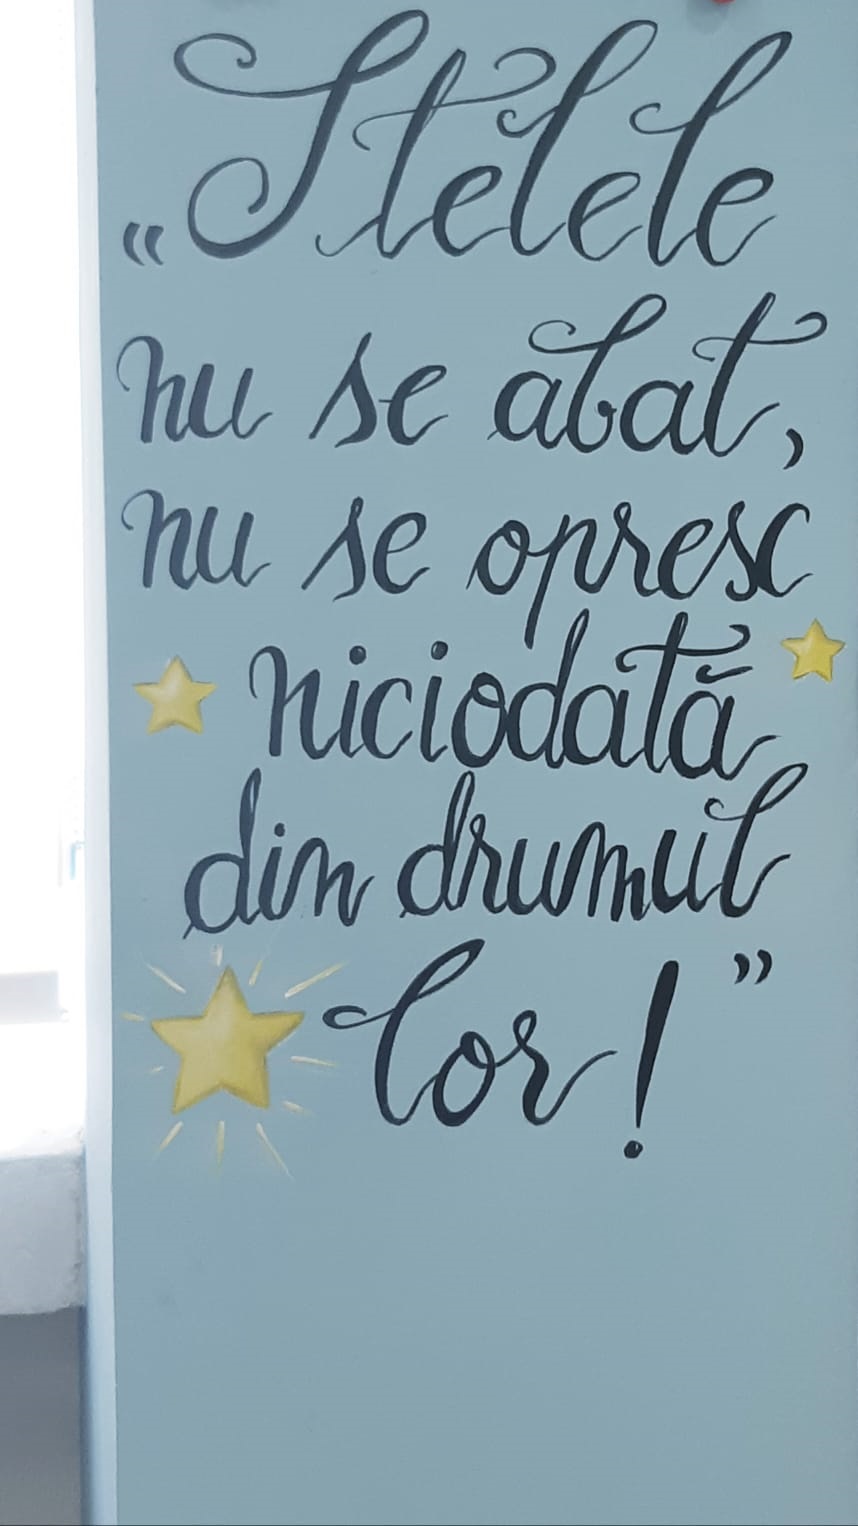 „Stelele
nu se abat,
nu se opresc
niciodată
din drumul
lor!”